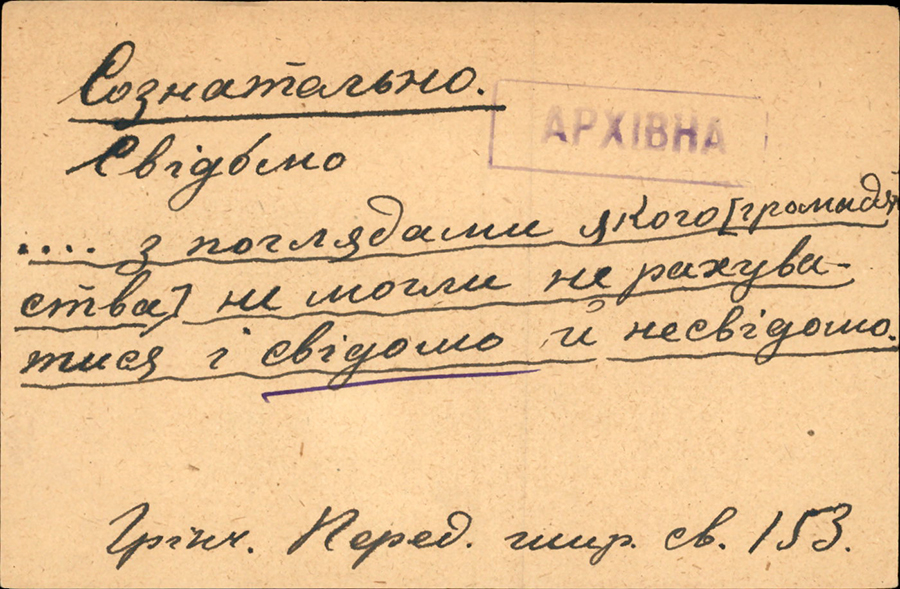 Сознательно.
АРХІВНА
Свідомо
.... з поглядами якого [громадян
ства] не могли не рахува-
тися і свідомо й несвідомо.
Грінч. Перед. шир. св. 153.